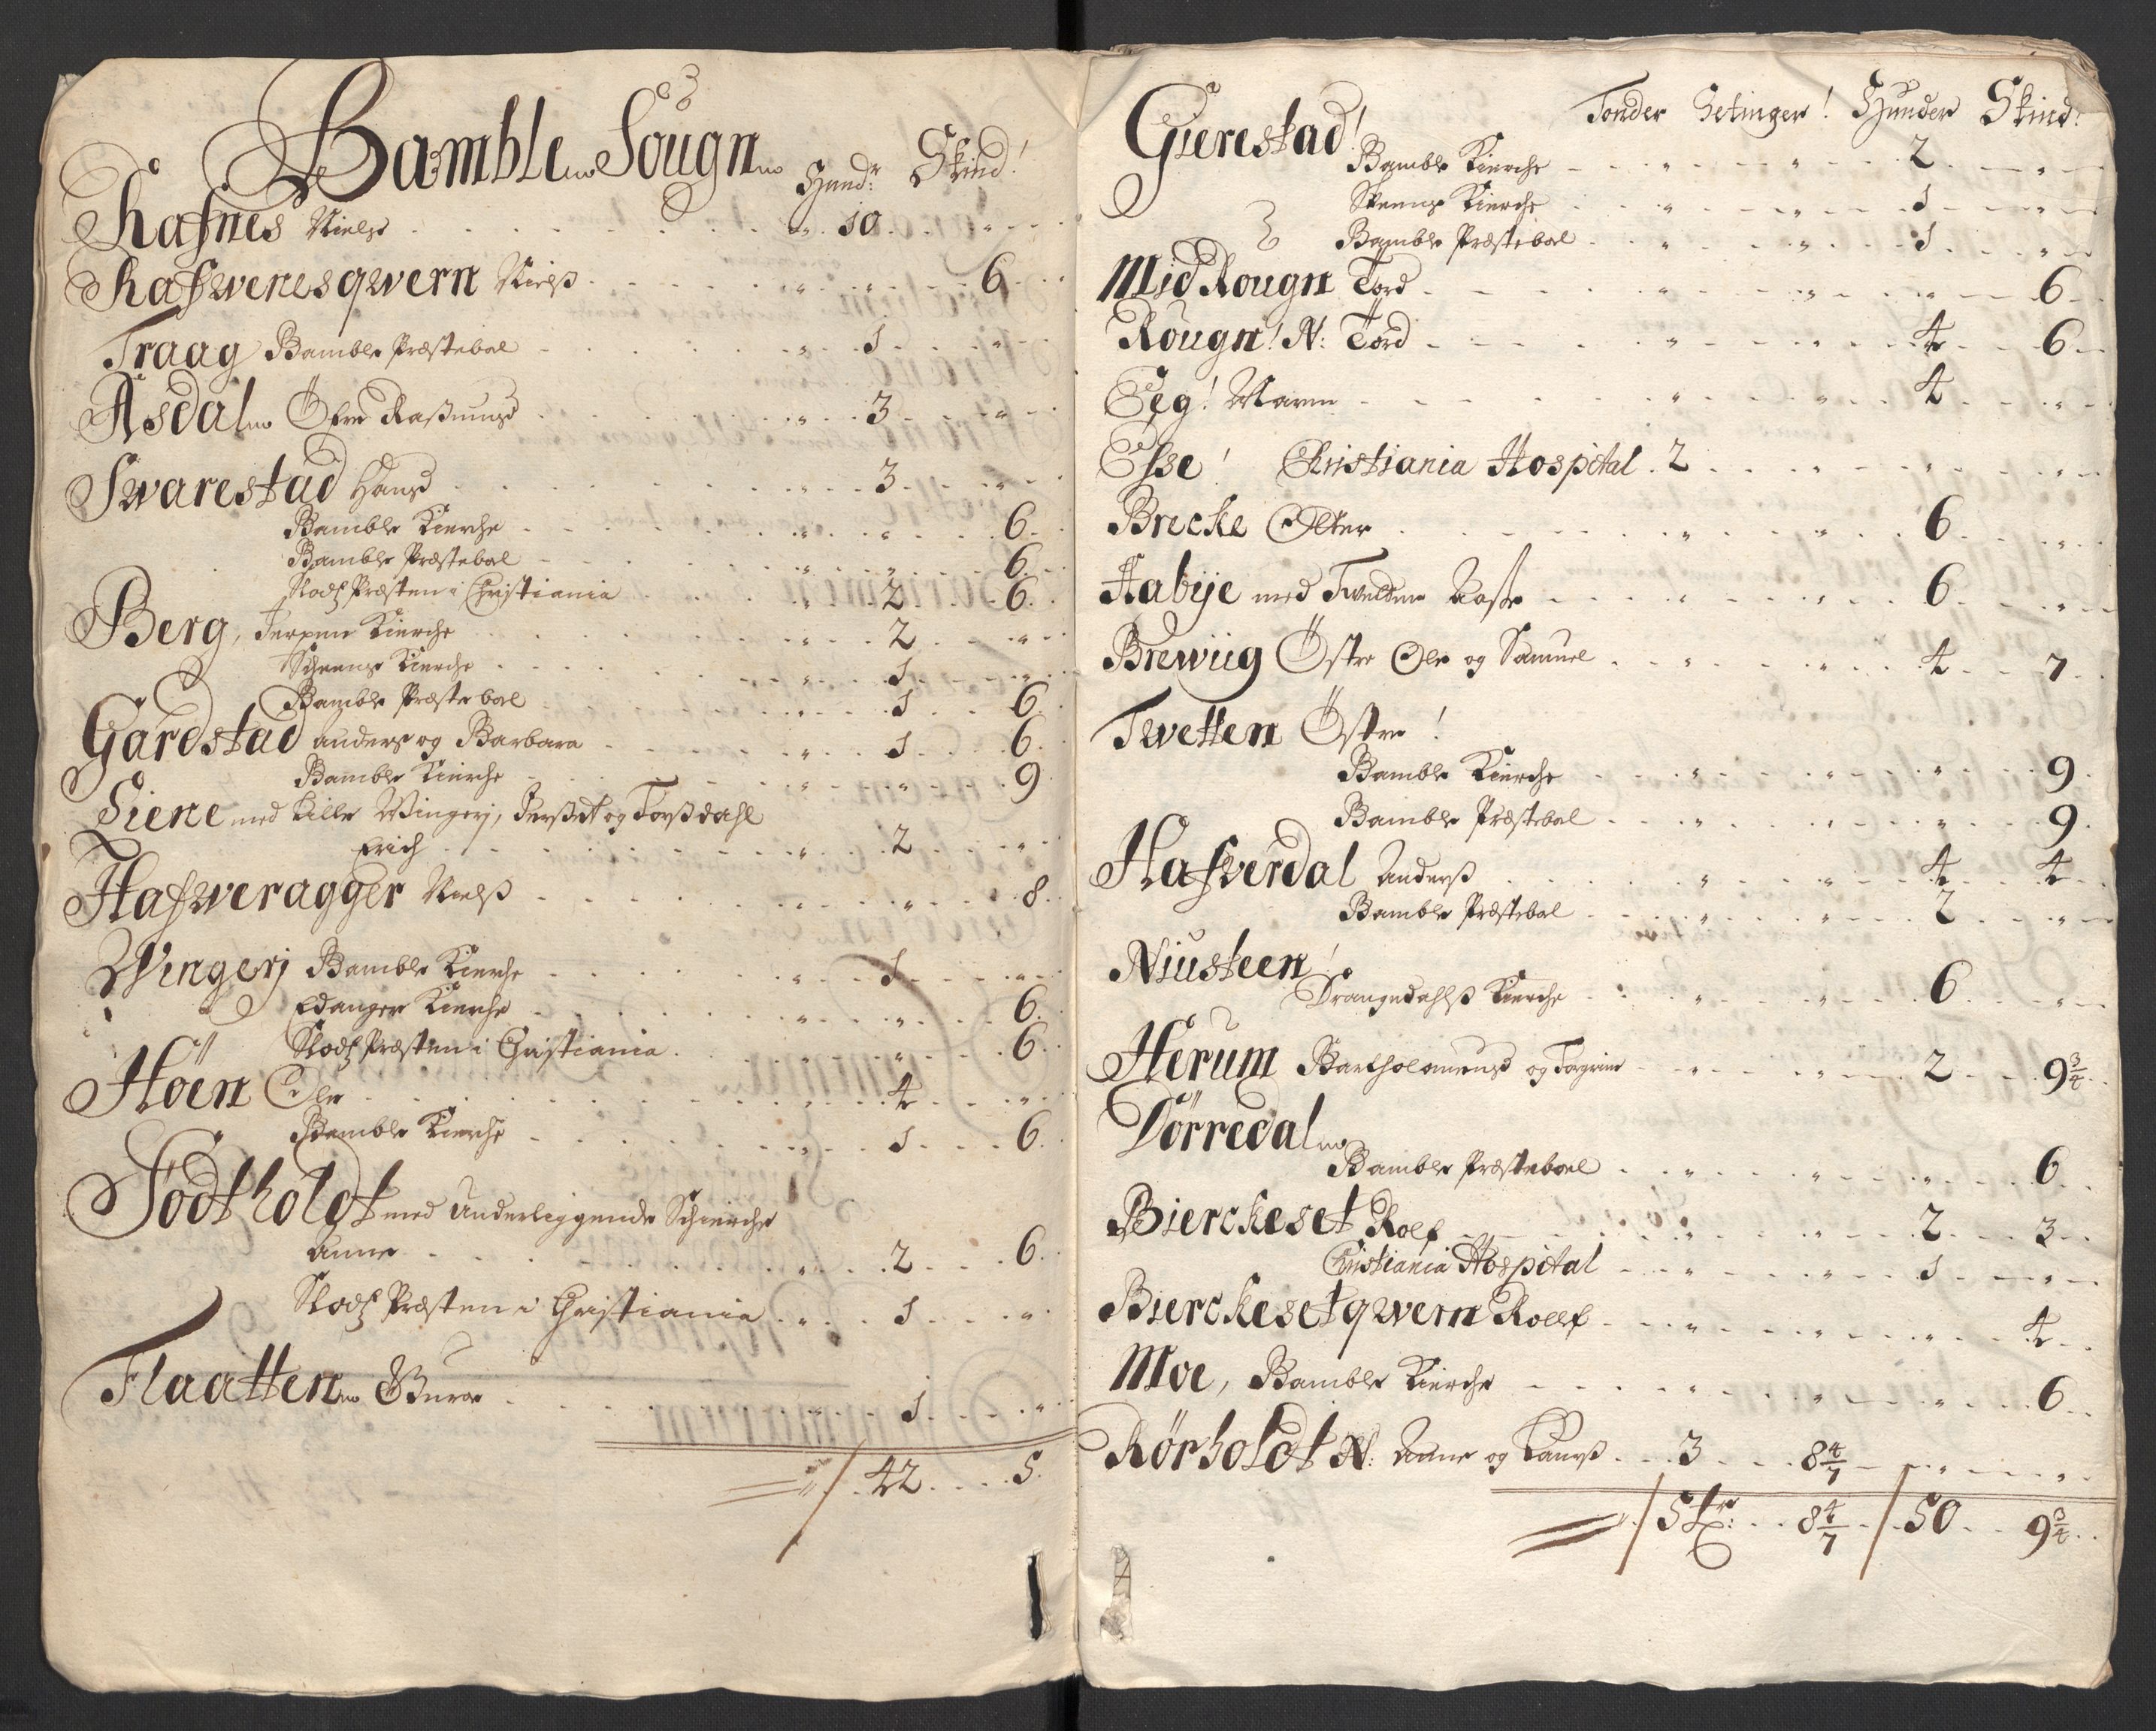 Bamble Sougn
Hundr: Skind!
Rafnes Nielss . . 10 . . "
Rafwenesqwern Nielss . . " . . 6
Traag Bamble Præstebol . . 1 . . "
Asdal Öfre Rassmus . . 3 . . "
Swarestad Hans . . 3 . . "
Bamble Kierche . . " . . 6
Bamble Præstebol . . " . . 6
Slodtz Præsten i Christiania . . 2 . . 6
Berg, Jerpen Kierche . . 2 . . "
Scheens Kierche . . 1 . . "
Bamble Præstebol . . 1 . . 6
Gardstad anders og Barbara . . 1 . . 6
Bamble Kierche . . " . . 9
Siene med Lille Wingerj, og Forssdahl
Erich . . 2 . . "
Hafweragger Nielss . . " . . 8
Wingerj Bamble Kierche . . 1 . . "
Edanger Kierche . . " . . 6
Slodtz Præsten i Christiania . . " . . 6
Höen Ole . . 4 . . "
Bamble Kierche . . 1 . . 6
Födtholdt med Underliggende Schierche
Anne . . 2 . . 6
Slodtz Præsten i Christiania . . 1 . . "
Flaatten Guroe . . 1 . . "
42 . . 5
Tønder Setinger! Hunder Skind:
Gierestad!
Bamble Kierche . . " . . " . . 2 . . "
Skeens Kierche . . " . . " . . 1 . . "
Bamble Præstebol . . " . . " . . 1 . . "
Mid Rougn Tord . . " . . " . . " . . 6
Rougn! N: Tord . . " . . " . . 4 . . 6
Eeg! Maren . . " . . " . . 4 . . "
Esse! Christiania Hospital . 2 . . " . . " . . "
Brecke Olter . . " . . " . . 6 . . "
Aabye med Twedten Aasse . . " . . " . . 6 . . "
Brewiig Östre Ole og Samuel . . " . . " . . 4 . . 7
Twetten Östre!
Bamble Kierche . . " . . " . . " . . 9
Bamble Præstebol . . " . . " . . " . . 9
Hafwerdal Anderss . . " . . " . . 4 . . 4
Bamble Præstebol . . " . . " . . 2 . . "
Niusteen!
Drangedahlss Kierche . . " . . " . . 6 . . "
Herum Bartholomeus og Torgrim . . " . . " . . 2 . . 9 3/4
Dörredal
Bamble Præstebol . . " . . " . . " . . 6
Bierckeset Rolf . . " . . " . . 2 . . 3
Christiania Hospital . . " . . " . . 1 . . "
Bierckesetqwern Rollf . . " . . " . . " . . 4
Moe, Bamble Kierche . . " . . " . . " . . 6
Rörholdt N: Anne og Laurss . . 3 . . 8 4/7 . . " . . "
5 tr: . . 8 4/7 . . 50 . . 9 3/4